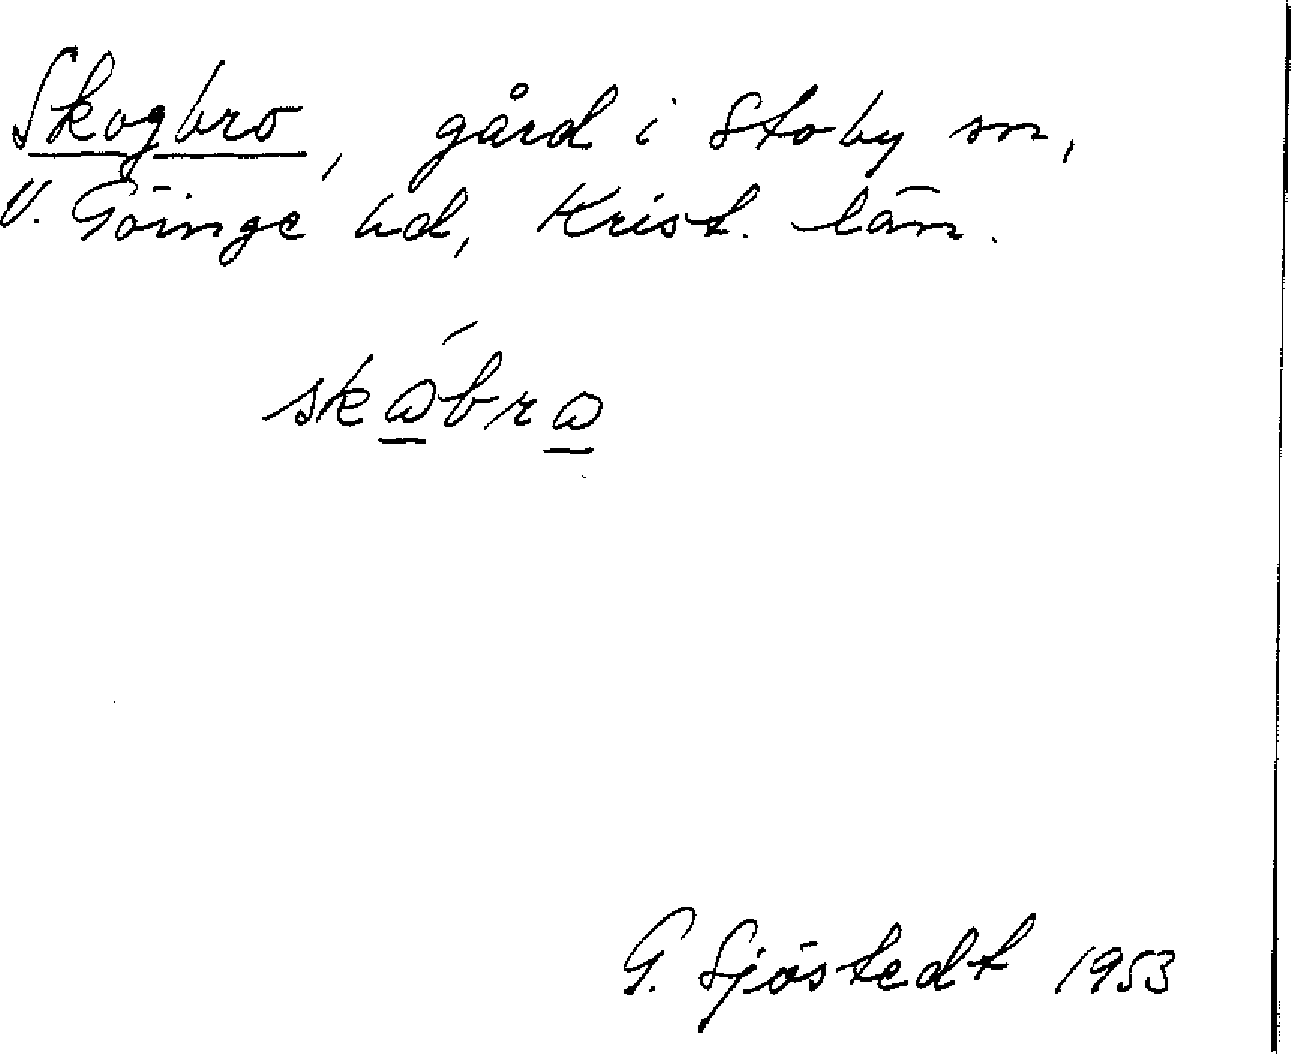 Skogbro, gård i Stoby sn,
V. Göinge hd, Krist. län.
skɷ́brɷ
G. Sjöstedt 1953